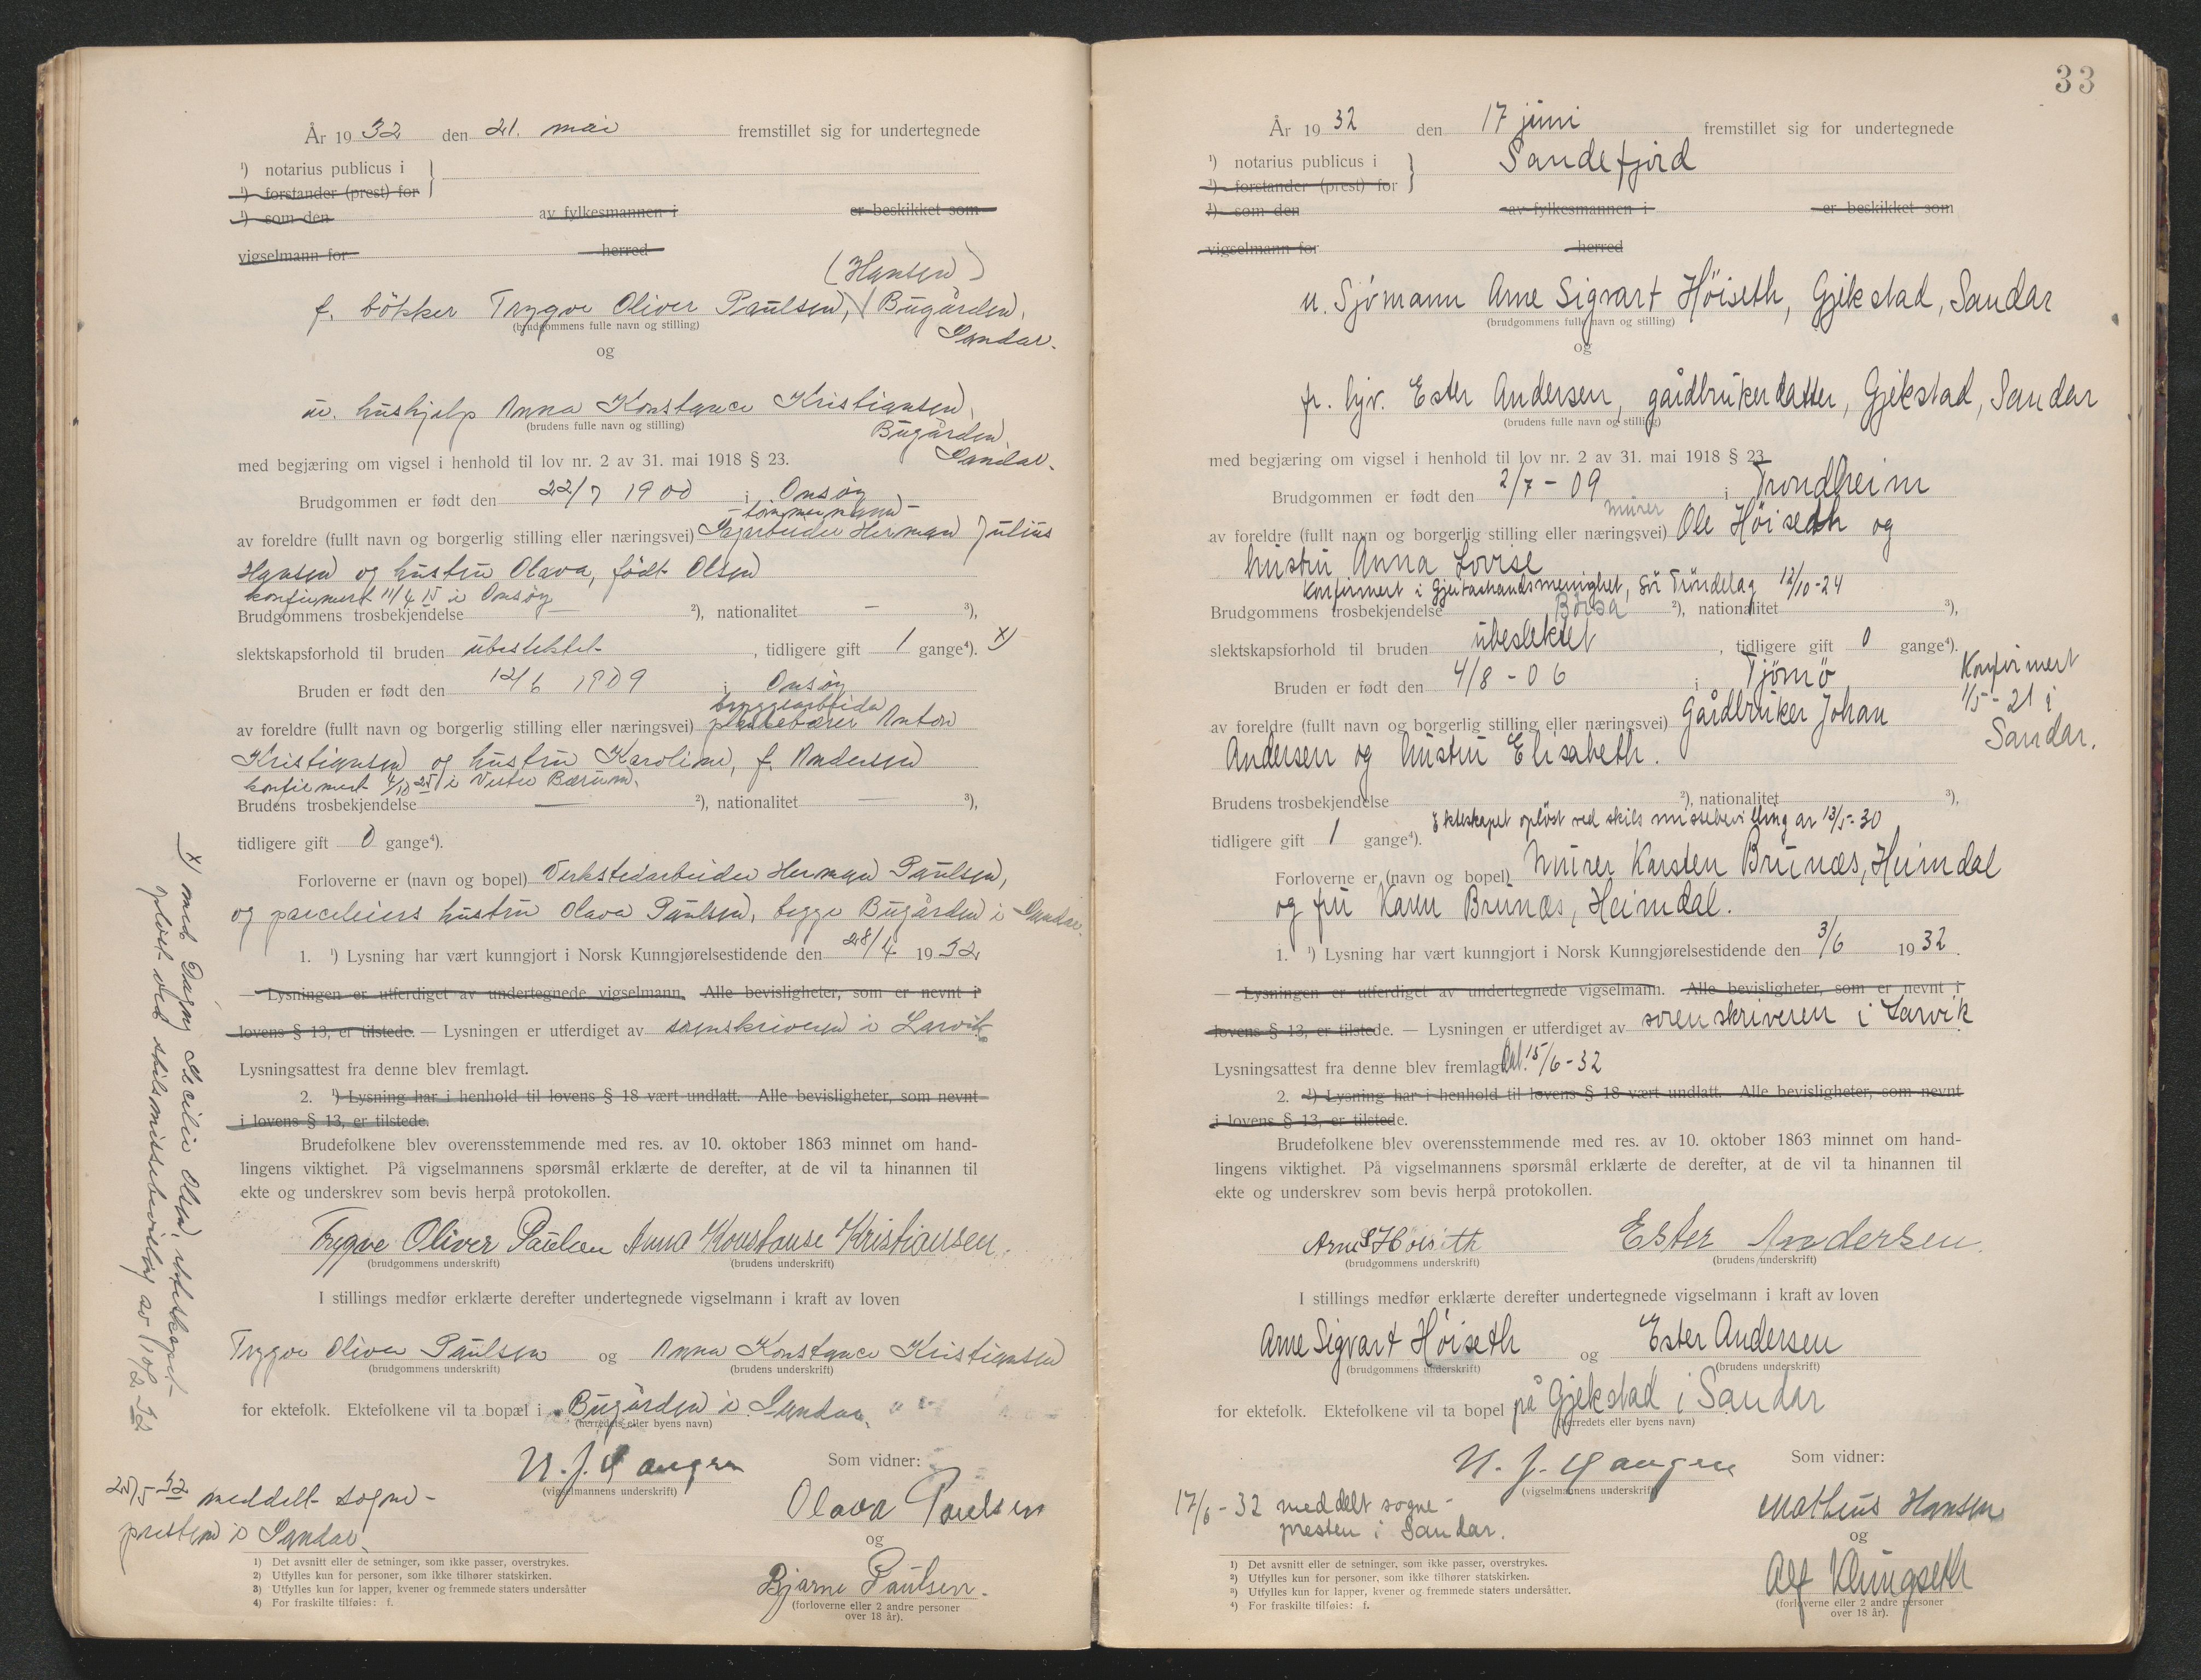 År 1932 den 21. mai fremstillet sig for undertegnede
¹) notarius publicus i
¹) forstander (prest) for
¹) som den av fylkesmannen i er beskikket som
vigselmann for herred
(Hansen)
f. bökker Trygve Oliver Paulsen, Bugården,
(brudgommens fulle navn og stilling)
Sandar.
og
u. hushjelp Anna Konstance Kristiansen,
(brudens fulle navn og stilling)
Bugården,
Sandar.
med begjæring om vigsel i henhold til lov nr. 2 av 31. mai 1918 § 23.
Brudgommen er født den 22/7 1900 i Onsöy
-tömmermann-
av foreldre (fullt navn og borgerlig stilling eller næringsvei) Sagarbeider Herman Julius
Hansen og hustru Olava, födt Olsen
konfirmert 11/4 15 i Onsöy
Brudgommens trosbekjendelse — ²), nationalitet — ³),
slektskapsforhold til bruden ubeslektet , tidligere gift 1 gange⁴). x)
Bruden er født den 12/6 1909 i Onsöy
bryggearbeider
av foreldre (fullt navn og borgerlig stilling eller næringsvei) plankebærer Anton
Kristiansen og hustru Karoline, f. Andersen
konfirmert 4/10 25 i Vestre Bærum.
Brudens trosbekjendelse — ²), nationalitet — ³),
tidligere gift 0 gange⁴).
Forloverne er (navn og bopel) Verkstedarbeider Herman Paulsen,
og parseleiers hustru Olava Paulsen, begge Bugården i Sandar.
1. ¹) Lysning har vært kunngjort i Norsk Kunngjørelsestidende den 28/4 1932
— Lysningen er utferdiget av undertegnede vigselmann. Alle bevisligheter, som er nevnt i
lovens § 13, er tilstede. — Lysningen er utferdiget av sorenskriveren i Larvik
Lysningsattest fra denne blev fremlagt.
2. ¹) Lysning har i henhold til lovens § 18 vært undlatt. Alle bevisligheter, som nevnt
i lovens § 13, er tilstede.
Brudefolkene blev overensstemmende med res. av 10. oktober 1863 minnet om hand-
lingens viktighet. På vigselmannens spørsmål erklærte de derefter, at de vil ta hinannen til
ekte og underskrev som bevis herpå protokollen.
Trygve Oliver Paulsen Anna Konstanse Kristiansen.
(brudgommens underskrift) (brudens underskrift)
I stillings medfør erklærte derefter undertegnede vigselmann i kraft av loven
Trygve Oliver Paulsen og Anna Konstance Kristiansen
(brudgommens underskrift) (brudens underskrift)
for ektefolk. Ektefolkene vil ta bopæl i Bugården i Sandar.
(herredets eller byens navn)
(vigselmannens underskrift)
Som vidner:
Olava Paulsen
og
Bjarne Paulsen.
(forloverne eller 2 andre personer
over 18 år).
25/5-32 meddelt sogne-
presten i Sandar.
1) Det avsnitt eller de setninger, som ikke passer, overstrykes.
2) Utfylles kun for personer, som ikke tilhører statskirken.
3) Utfylles kun for lapper, kvener og fremmede staters undersåtter
4) For fraskilte tilføies: f.
x) med Dagny Cecilie Olsen, ekteskapet
opløst ved skilsmissebevilling av 10/2-32
33
År 1932 den 17 juni fremstillet sig for undertegnede
¹) notarius publicus i Sandefjord
¹) forstander (prest) for
¹) som den av fylkesmannen i er beskikket som
vigselmann for herred
u. Sjömann Arne Sigvart Höiseth, Gjekstad, Sandar
(brudgommens fulle navn og stilling)
og
fr. hjv. Ester Andersen, gårdbrukerdatter, Gjekstad, Sandar
(brudens fulle navn og stilling)
med begjæring om vigsel i henhold til lov nr. 2 av 31. mai 1918 § 23
Brudgommen er født den 2/7-09 i Trondheim
murer
av foreldre (fullt navn og borgerlig stilling eller næringsvei) Ole Höiseth og
hustru Anna Lovise
Konfirmert i Gjeitastrandsmenighet, Sör Tröndelag 12/10-24
Brudgommens trosbekjendelse Börsa ²), nationalitet ³),
slektskapsforhold til bruden ubeslektet , tidligere gift 0 gange⁴).
Bruden er født den 4/8-06 i Tjömö
Konfirmert
1/5-21 i
Sandar.
av foreldre (fullt navn og borgerlig stilling eller næringsvei) Gårdbruker Johan
Andersen og hustru Elisabeth.
Brudens trosbekjendelse ²), nationalitet ³),
Ekteskapet oplöst ved skilsmissebevilling av 13/5-30
tidligere gift 1 gange⁴).
Forloverne er (navn og bopel) Murer Karsten Brunæs, Heimdal
og fru Karen Brunæs, Heimdal.
1. ¹) Lysning har vært kunngjort i Norsk Kunngjørelsestidende den 3/6 1932.
— Lysningen er utferdiget av undertegnede vigselmann. Alle bevisligheter, som er nevnt i
lovens § 13, er tilstede. — Lysningen er utferdiget av sorenskriveren i Larvik
Lysningsattest fra denne blev fremlagt dat. 15/6-32
2. ¹) Lysning har i henhold til lovens § 18 vært undlatt. Alle bevisligheter, som nevnt
i lovens § 13, er tilstede.
Brudefolkene blev overensstemmende med res. av 10. oktober 1863 minnet om hand-
lingens viktighet. På vigselmannens spørsmål erklærte de derefter, at de vil ta hinannen til
ekte og underskrev som bevis herpå protokollen.
Arne S Höiseth Ester Andersen.
(brudgommens underskrift) (brudens underskrift)
I stillings medfør erklærte derefter undertegnede vigselmann i kraft av loven
Arne Sigvart Höiseth og Ester Andersen
(brudgommens underskrift) (brudens underskrift)
for ektefolk. Ektefolkene vil ta bopel på Gjekstad i Sandar
(herredets eller byens navn)
(vigselmannens underskrift)
Som vidner:
Mathius Hansen
og
Alf Klingseth
(forloverne eller 2 andre personer
over 18 år).
17/6-32 meddelt sogne-
presten i Sandar.
1) Det avsnitt eller de setninger, som ikke passer, overstrykes.
2) Utfylles kun for personer, som ikke tilhører statskirken.
3) Utfylles kun for lapper, kvener og fremmede staters undersåtter.
4) For fraskilte tilføies: f.